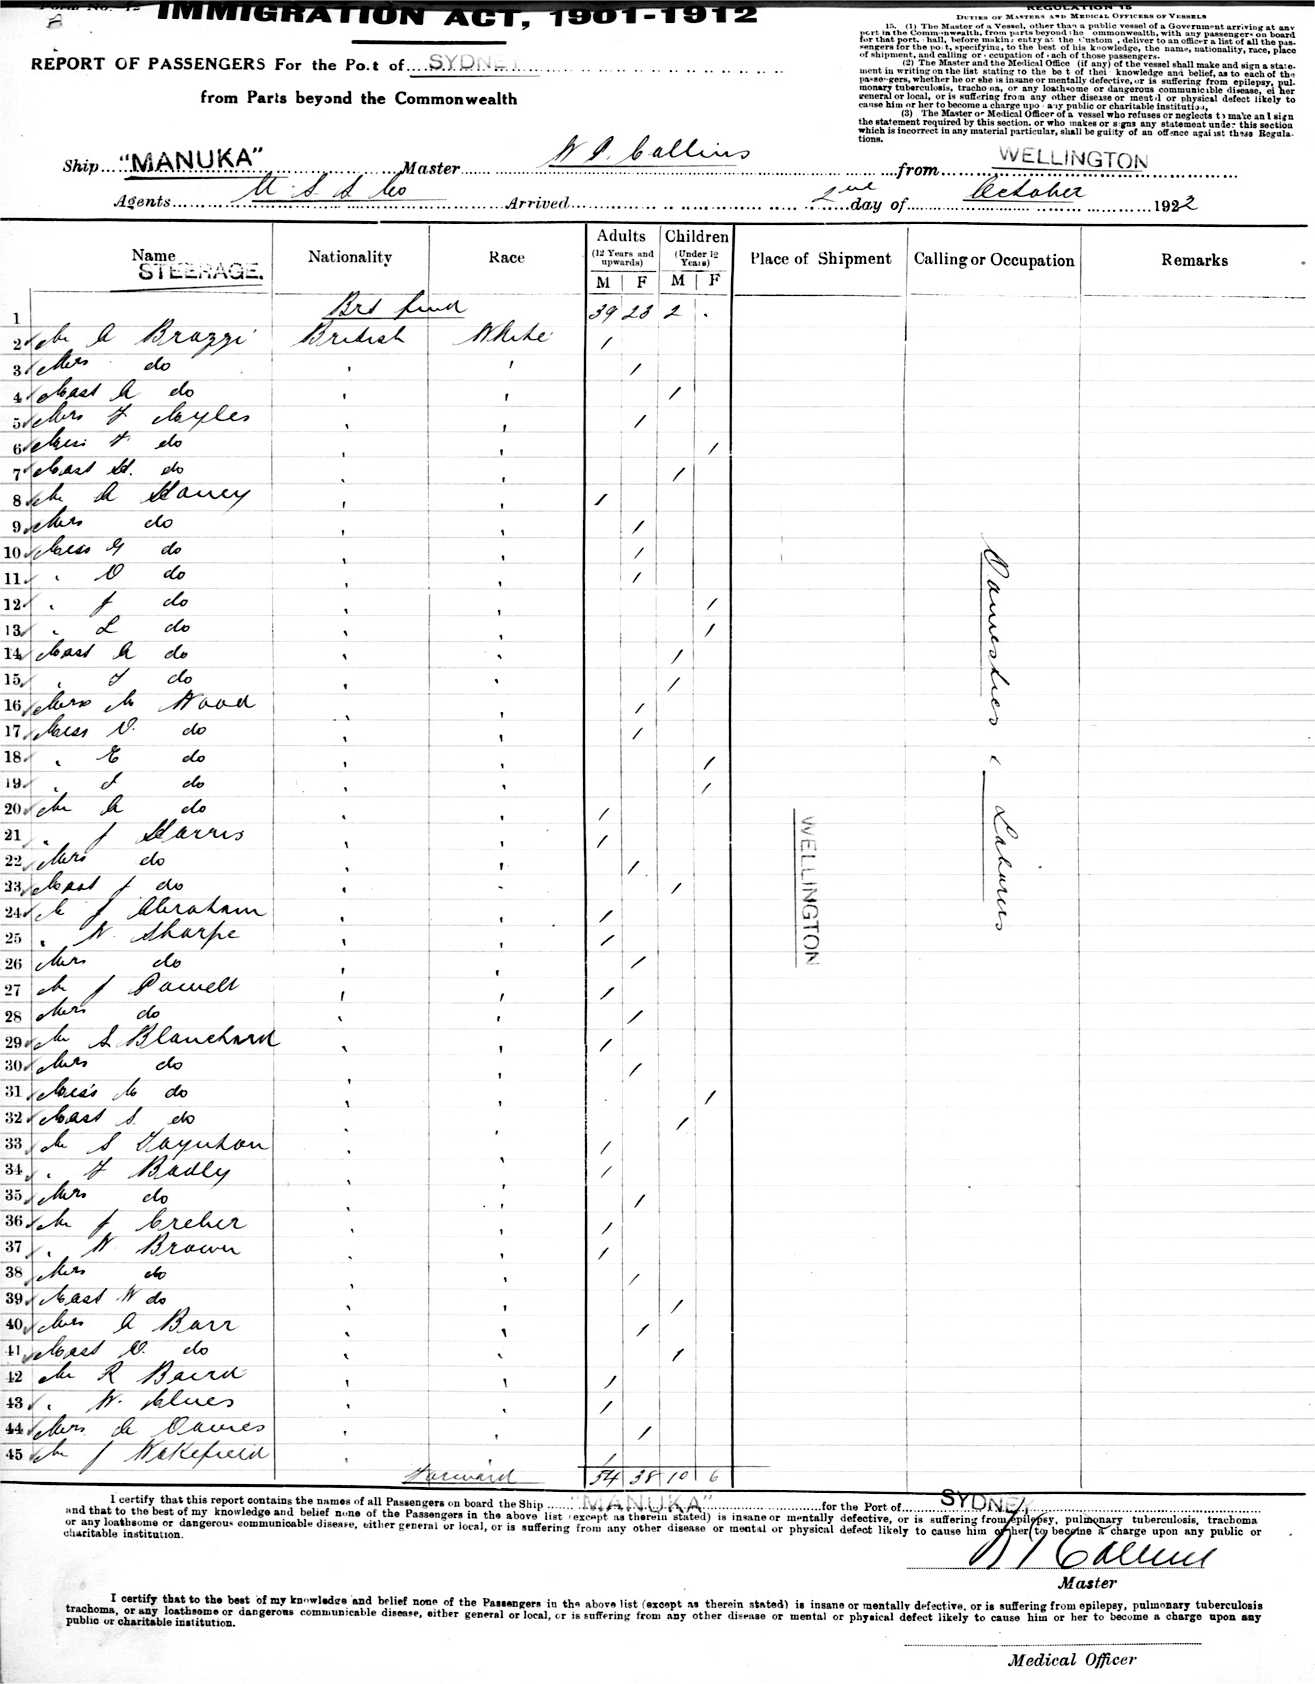 Form No. 42
IMMIGRATION ACT, 1901-1912
REPORT OF PASSENGERS For the Port of SYDNEY
from Parts beyond the Commonwealth
REGULATION 15
DUTIES OF MASTERS AND MEDICAL OFFICERS OF VESSELS
15. (1) The Master of a Vessel, other than a public vessel of a Government arriving at any
port in the Commonwealth, from parts beyond the Commonwealth, with any passengers on board
for that port, shall, before making entry at the Customs, deliver to an officer a list of all the pas-
sengers for the port, specifying, to the best of his knowledge, the name, nationality, race, place
of shipment, and calling or occupation of each of those passengers.
(2) The Master and the Medical Office (if any) of the vessel shall make and sign a state-
ment in writing on the list stating to the best of their knowledge and belief, as to each of the
passengers, whether he or she is insane or mentally defective, or is suffering from epilepsy, pul-
monary tuberculosis, trachoma, or any loathsome or dangerous communicable disease, either
general or local, or is suffering from any other disease or mental or physical defect likely to
cause him or her to become a charge upon any public or charitable institution,
(3) The Master or Medical Officer of a vessel who refuses or neglects to make and sign
the statement required by this section, or who makes or signs any statement under this section
which is incorrect in any material particular, shall be guilty of an offence against these Regula-
tions.
Ship "MANUKA" Master W P Collins from WELLINGTON
Agents U S S Co Arrived 2nd day of October 1922
Name Nationality Race Adults Children Place of Shipment Calling or Occupation Remarks
STEERAGE.
(12 Years and upwards) (Under 12 Years)
M F M F
1 Brt fwd 39 23 2 .
2 Mr A Brazzi British White 1
3 Mrs do 1
4 Mast A do 1
5 Mrs F Myles 1
6 Miss F do 1
7 Mast H. do 1
8 Mr A Haney 1
9 Mrs do 1
10 Miss G do 1
11 " O do 1
12 " J do 1
13 " L do 1
14 Mast A do 1
15 " T do 1
16 Mrs M Wood 1
17 Miss V. do 1
18 " E do 1
19 " I do 1
20 Mr A do 1
21 " J Harris 1
22 Mrs do 1
23 Mast J do 1
24 Mr J Abraham 1
25 " W. Sharpe 1
26 Mrs do 1
27 Mr J Powell 1
28 Mrs do 1
29 Mr S Blanchard 1
30 Mrs do 1
31 Miss M do 1
32 Mast S. do 1
33 Mr S Taynton 1
34 " F Badly 1
35 Mrs do 1
36 Mr J Creber 1
37 " W Brown 1
38 Mrs do 1
39 Mast W do 1
40 Mrs A Barr 1
41 Mast V. do 1
42 Mr R Baird 1
43 " W. Clues 1
44 Mrs A Davies 1
45 Mr J Wakefield 1
Forward 54 38 10 6
WELLINGTON
Domestics & Labourers
I certify that this report contains the names of all Passengers on board the Ship "MANUKA" for the Port of SYDNEY
and that to the best of my knowledge and belief none of the Passengers in the above list (except as therein stated) is insane or mentally defective, or is suffering from epilepsy, pulmonary tuberculosis, trachoma
or any loathsome or dangerous communicable disease, either general or local, or is suffering from any other disease or mental or physical defect likely to cause him or her to become a charge upon any public or
charitable institution.
W P Collins
Master
I certify that to the best of my knowledge and belief none of the Passengers in the above list (except as therein stated) is insane or mentally defective, or is suffering from epilepsy, pulmonary tuberculosis
trachoma, or any loathsome or dangerous communicable disease, either general or local, or is suffering from any other disease or mental or physical defect likely to cause him or her to become a charge upon any
public or charitable institution.
Medical Officer